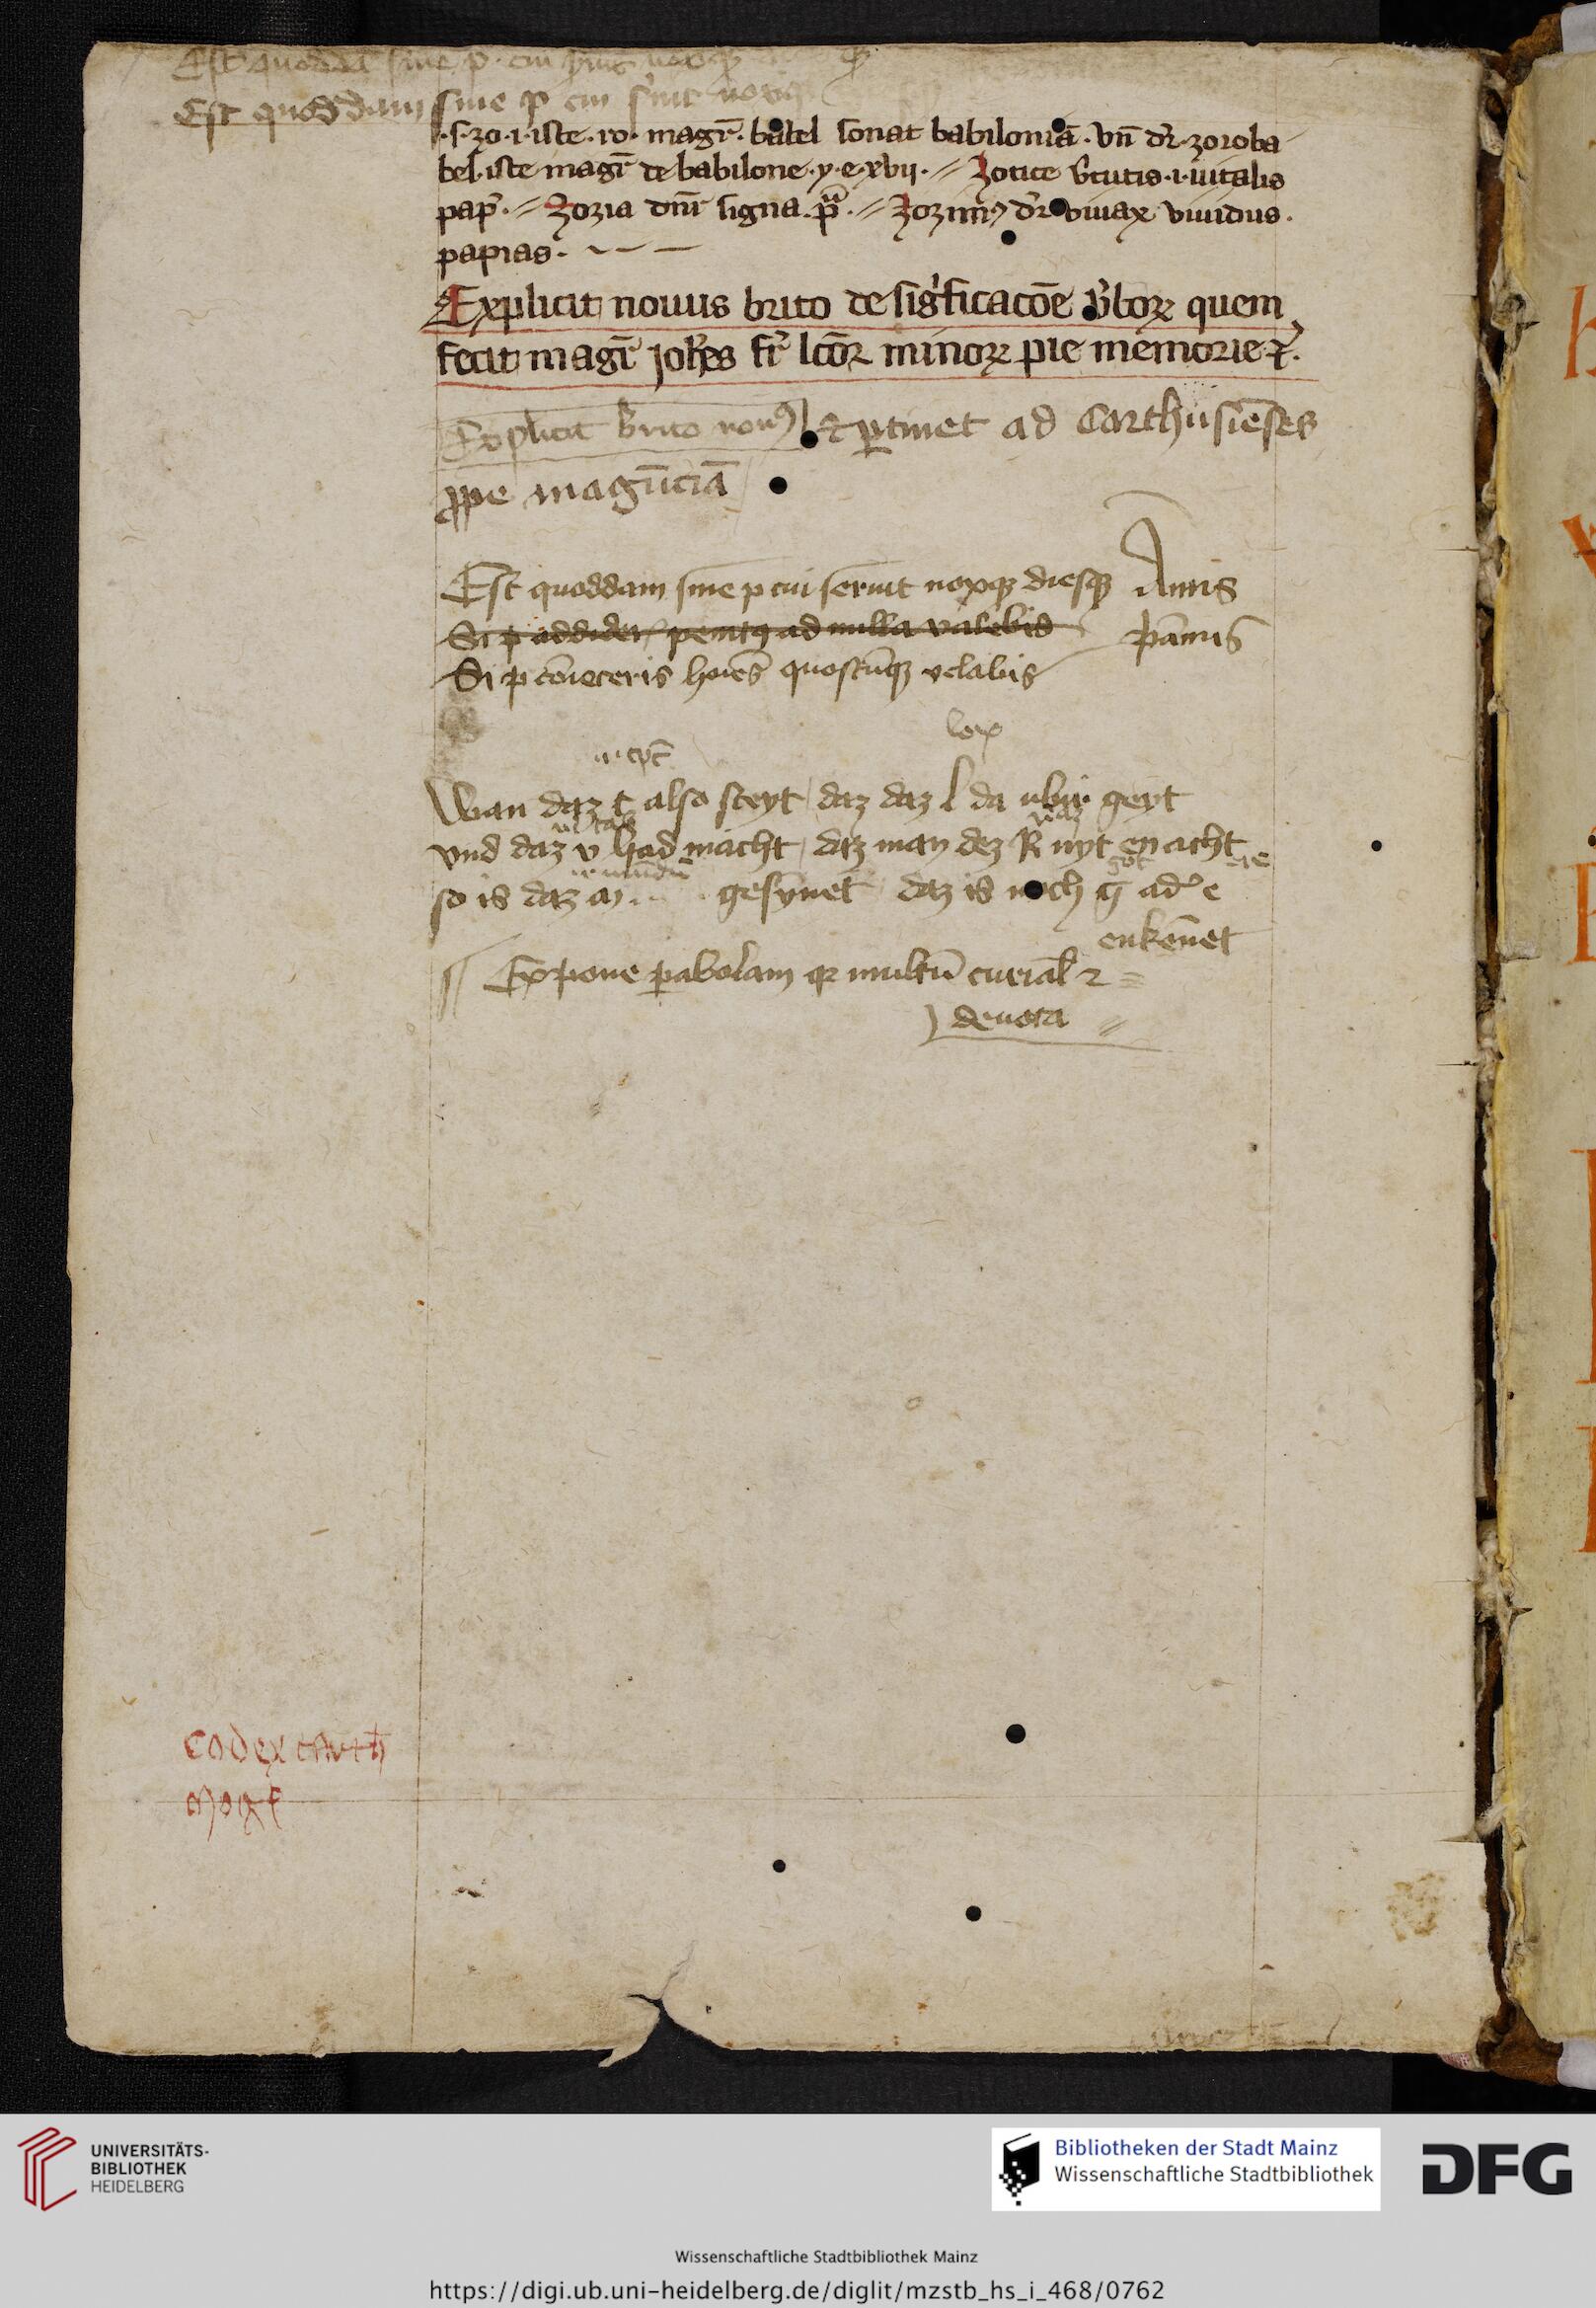 Est quoddā sine p cui
Est quoddam sine p cui s'uit nox
.s.zo.i.iste.ro.magr̄.babel sonat babiloniā.vn̄ dr̄.zoroba
bel.iste magr̄ de babilone.y.e.xvij.// Zotice v̓tutis.i.uitalis
pap̓.// Zozia dn̄r signa.pᷓ.// Zozimꝰ dr̄ viuax viuidus.
papias.
Explicit nouus brito de sig̓ficacōe v̓boꝝ quem
fecit magr̄ joh̄es fr̄ lcōꝝ minoꝝ pie memorie ⁊c̄.
Explicit brito nouꝰ ⁊ ꝑtinet ad Carthusiēses
ꝓpe magūciā
Est quoddam sine p cui seruit noxqꝫ diesqꝫ Annis
Si p addider̄ penitꝰ ad nulla valebis pānis
Si p cōieceris hoīes quoscūqꝫ velabis
lex
xp̄c
Wan daz t also steyt daz daz l da ubir geyt
vnd daz v had macht daz man dez R nyt en acht
mūdū got
so is daz m gesynet daz is noch g ad̓ e
enkēnet
Expone ꝑabolam qꝛ multū curial̄ ⁊
deuota
Codex carth
mogꝭ
UNIVERSITÄTS-
BIBLIOTHEK
HEIDELBERG
Bibliotheken der Stadt Mainz
Wissenschaftliche Stadtbibliothek
DFG
Wissenschaftliche Stadtbibliothek Mainz
https://digi.ub.uni-heidelberg.de/diglit/mzstb_hs_i_468/0762